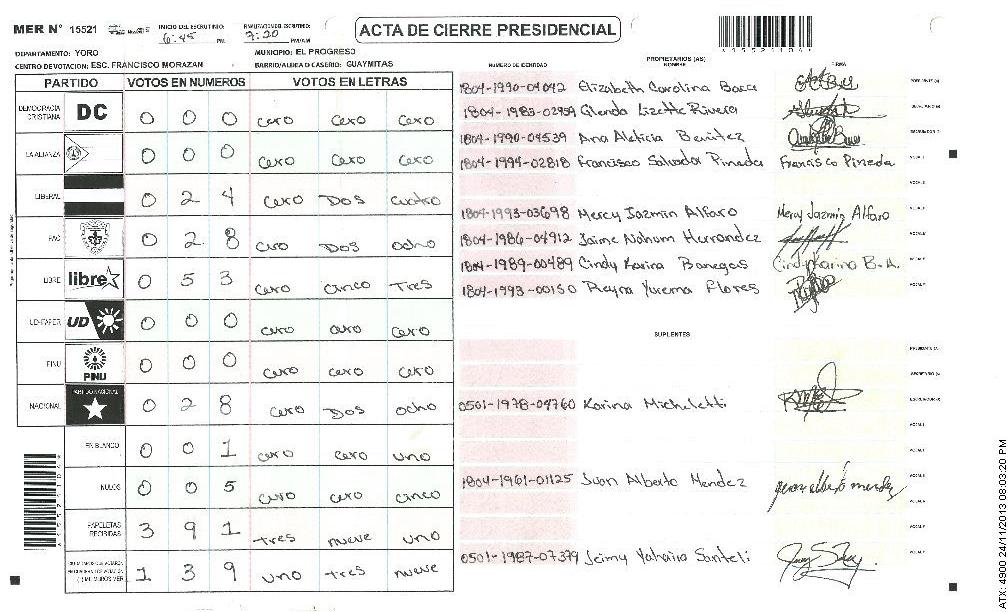 MER N° 15521
INICIO DEL ESCRUTINIO: 6:45 PM
FINALIZACION DEL ESCRUTINIO: 7:20 PM/AM
ACTA DE CIERRE PRESIDENCIAL
DEPARTAMENTO: YORO
MUNICIPIO: EL PROGRESO
CENTRO DE VOTACION: ESC. FRANCISCO MORAZAN
BARRIO/ALDEA O CASERIO: GUAYMITAS
PARTIDO VOTOS EN NUMEROS VOTOS EN LETRAS
DEMOCRACIA CRISTIANA DC 0 0 0 cero cero cero
LA ALIANZA 0 0 0 cero cero cero
LIBERAL 0 2 4 cero Dos cuatro
PAC 0 2 8 cero Dos ocho
LIBRE libre 0 5 3 cero cinco Tres
UD-FAPER UD 0 0 0 cero cero cero
PINU PINU 0 0 0 cero cero cero
NACIONAL PARTIDO NACIONAL 0 2 8 cero Dos ocho
EN BLANCO 0 0 1 cero cero uno
NULOS 0 0 5 cero cero cinco
PAPELETAS RECIBIDAS 3 9 1 tres nueve uno
1 3 9 uno tres nueve
PROPIETARIOS (AS)
NUMERO DE IDENTIDAD NOMBRE FIRMA
1804-1990-04042 Elizabeth Carolina Baca PRESIDENTE (A)
1804-1983-02959 Glenda Lizette Rivera SECRETARIO (A)
1804-1990-04539 Ana Aleticia Benitez ESCRUTADOR (A)
1804-1994-02818 Francisco Salvador Pineda Francisco Pineda VOCAL I
1804-1993-03698 Mercy Jazmin Alfaro Mercy Jazmin Alfaro
1804-1986-04912 Jaime Nahum Hernandez
1804-1989-00489 Cindy Karina Banegas Cindy Karina B. A.
1804-1993-00150 Reyna Yorema Flores
SUPLENTES
PRESIDENTE (A)
SECRETARIO (A)
0501-1978-04760 Karina Micheletti ESCRUTADOR (A)
1804-1961-01125 Juan Alberto Mendez juan alberto mendez
0501-1987-07379 Jeimy Yahaira Santeli
ATX: 4900 24/11/2013 08:03:20 PM